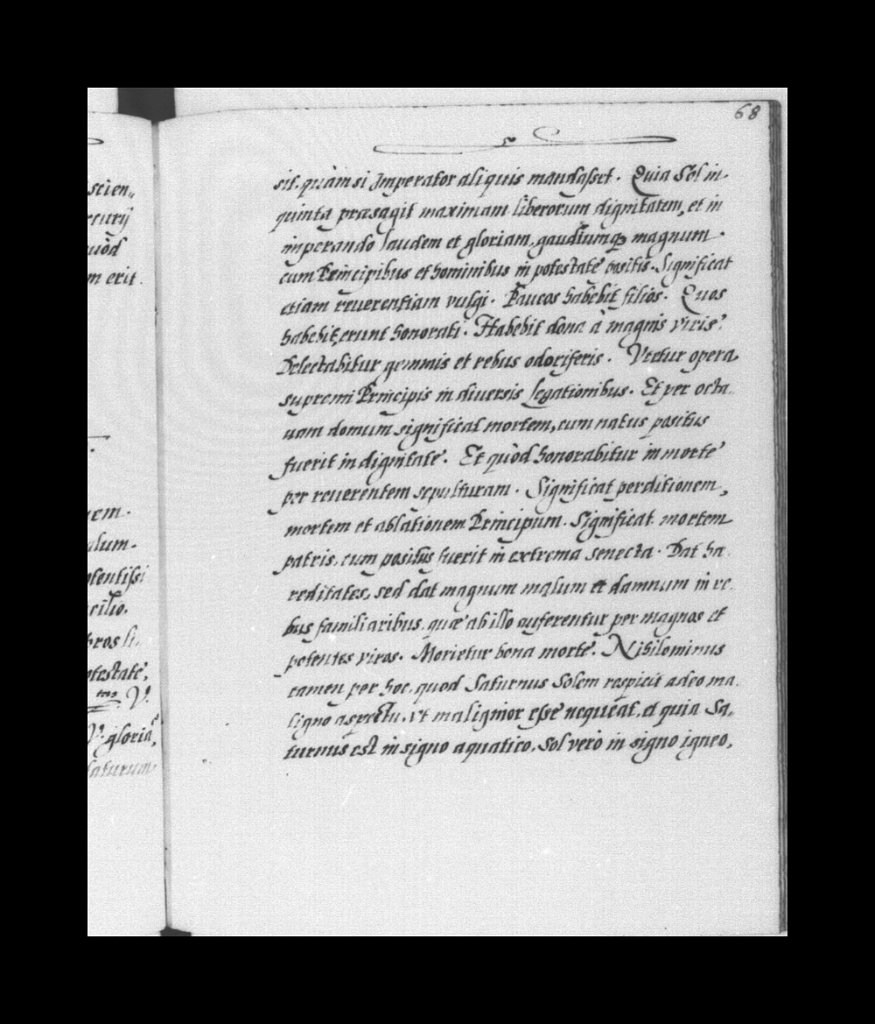 68
scien„
reurij
quòd
m erit.
rem.
alum.
otentissi
cilio.
bros li.
otestate,
V.
V. gloriã,
saturum
sit, quàm si Imperator aliquis mandasset. Quia Sol in.
quinta præsagit maximam liberorum dignitatem, et in
imperando laudem et gloriam, gaudiumq; magnum.
cum Principibus et hominibus in potestate positis. Significat
etiam reuerentiam vulgi. Paucos habebit filios. Quos
habebit, erunt honorati. Habebit dona à magnis viris.
Delectabitur gemmis et rebus odoriferis. Vtetur opera
supremi Principis in diuersis legationibus. Et per octa.
uam domum significat mortem, cum natus positus
fuerit in dignitate. Et quòd honorabitur in morte
per reuerentem sepulturam. Significat perditionem,
mortem et ablationem Principum. Significat mortem
patris, cum positus fuerit in extrema senecta. Dat hæ.
reditates, sed dat magnum malum et damnum in re.
bus familiaribus, quæ ab illo auferentur per magnos et
potentes viros. Morietur bona morte. Nihilominus
tamen per hoc, quod Saturnus Solem respicit adeo ma.
ligno aspectu, vt malignior esse nequeat, et quia Sa,
turnus est in signo aquatico, Sol verò in signo igneo,